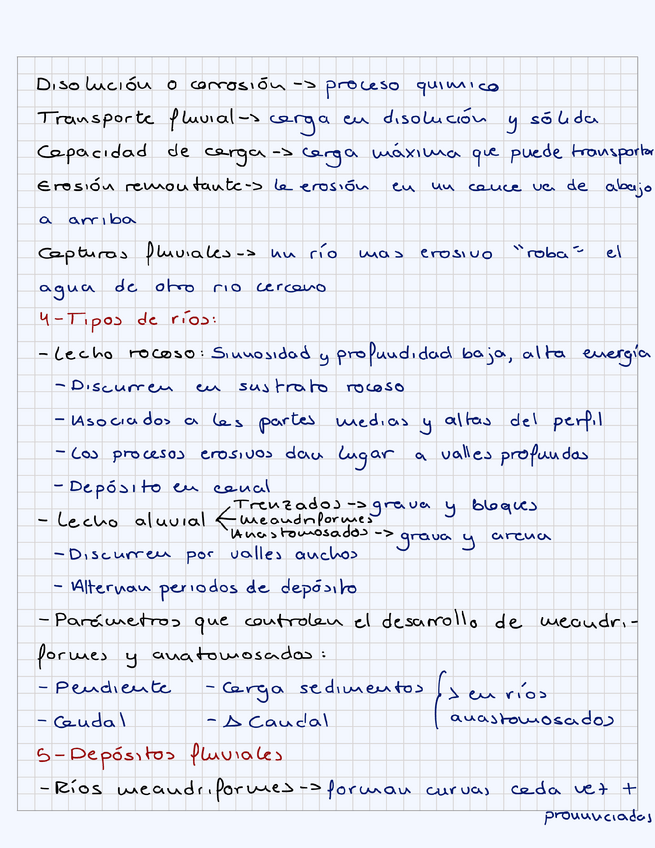 Disolución o corrosión -> proceso quimico
Transporte fluvial -> carga en disolución y sólida
Capacidad de carga -> carga máxima que puede transportar
Erosión remontante -> la erosión en un cauce va de abajo
a arriba
Capturas fluviales -> un río mas erosivo "roba" el
agua de otro rio cercano
4-Tipos de ríos:
- Lecho rocoso: Sinuosidad y profundidad baja, alta energía
- Discurren en sustrato rocoso
- Asociados a las partes medias y altas del perfil
- Los procesos erosivos dan lugar a valles profundos
- Depósito en canal
Trenzados -> grava y bloques
- Lecho aluvial <- meandriformes
Anastomosados -> grava y arena
- Discurren por valles anchos
- Alternan periodos de depósito
- Parámetros que controlan el desarrollo de meandri-
formes y anatomosados:
- Pendiente - Carga sedimentos { > en ríos
- Caudal - Δ Caudal anastomosados
5-Depósitos fluviales
- Ríos meandriformes -> forman curvas cada vez +
pronunciadas